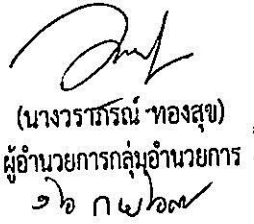 (นางวราภรณ์ ทองสุข)
ผู้อำนวยการกลุ่มอำนวยการ